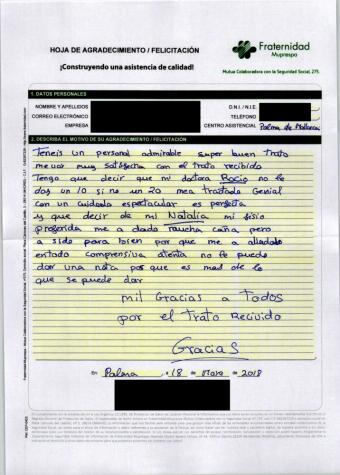 HOJA DE AGRADECIMIENTO / FELICITACIÓN
¡Construyendo una asistencia de calidad!
Fraternidad
Muprespa
Mutua Colaboradora con la Seguridad Social, 275
1. DATOS PERSONALES
NOMBRE Y APELLIDOS
CORREO ELECTRÓNICO
EMPRESA
D.N.I. / N.I.E.
TELÉFONO
CENTRO ASISTENCIAL Palma de Mallorca
2. DESCRIBA EL MOTIVO DE SU AGRADECIMIENTO / FELICITACIÓN
Teneis un personal admirable super buen trato
me voy muy satisfecha con el trato recibido
Tengo que decir que mi doctora Rocio no le
doy un 10 si no un 20 mea tratado Genial
con un cuidado espectacular es perfecta
y que decir de mi Natalia mi fisio
preferida me a dado mucha caña pero
a sido para bien por que me a aliviado
entado comprensiva atenta no le puedo
dar una nota por que es mas de lo
que se puede dar
mil Gracias a Todos
por el Trato Recivido
Gracias
En Palma a 18 de Mayo de 2018